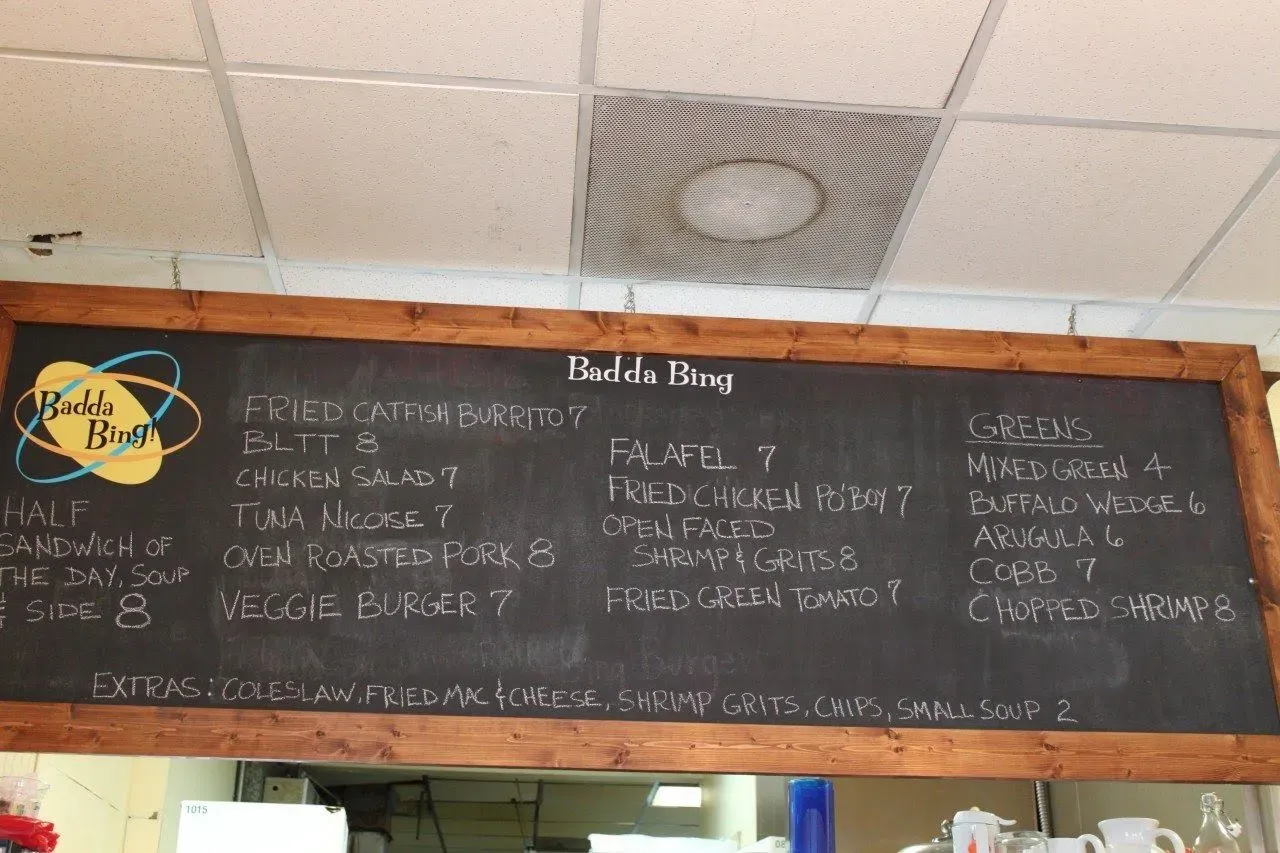 Badda Bing
Badda
Bing!
HALF
SANDWICH OF
THE DAY, SOUP
& SIDE 8
FRIED CATFISH BURRITO 7
BLTT 8
CHICKEN SALAD 7
TUNA NICOISE 7
OVEN ROASTED PORK 8
VEGGIE BURGER 7
FALAFEL 7
FRIED CHICKEN PO'BOY 7
OPEN FACED
SHRIMP & GRITS 8
FRIED GREEN TOMATO 7
GREENS
MIXED GREEN 4
BUFFALO WEDGE 6
ARUGULA 6
COBB 7
CHOPPED SHRIMP 8
EXTRAS: COLESLAW, FRIED MAC & CHEESE, SHRIMP GRITS, CHIPS, SMALL SOUP 2
1015